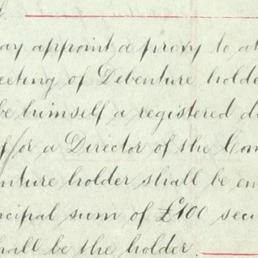 ay appoint a proxy to at
eeting of Debenture holde
be himself a registered d
for a Director of the Com
nture holder shall be en
ncipal sum of £100 secu
hall be the holder.